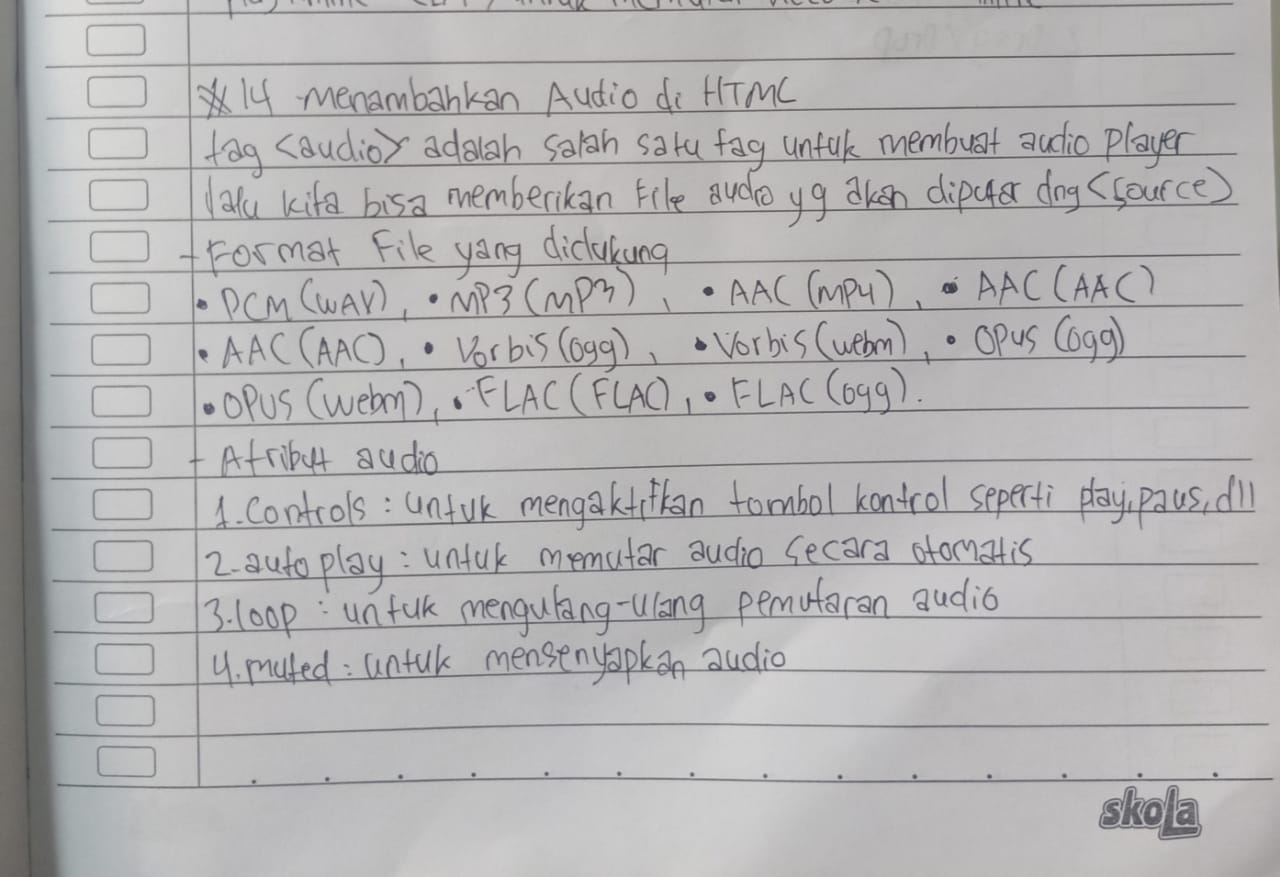 untuk
#14 Menambahkan Audio di HTML
tag <audio> adalah salah satu tag untuk membuat audio player
lalu kita bisa memberikan File audio yg akan diputar dng <source>
- Format File yang didukung
• PCM (WAV), • MP3 (MP3), • AAC (MP4), • AAC (AAC)
• AAC (AAC), • Vorbis (Ogg), • Vorbis (webm), • OPUS (Ogg)
• OPUS (webm), • FLAC (FLAC), • FLAC (Ogg).
- Atribut audio
1. Controls : untuk mengaktifkan tombol kontrol seperti play, paus, dll
2. autoplay : untuk memutar audio secara otomatis
3. loop : untuk mengulang-ulang pemutaran audio
4. muted : untuk mensenyapkan audio
skola